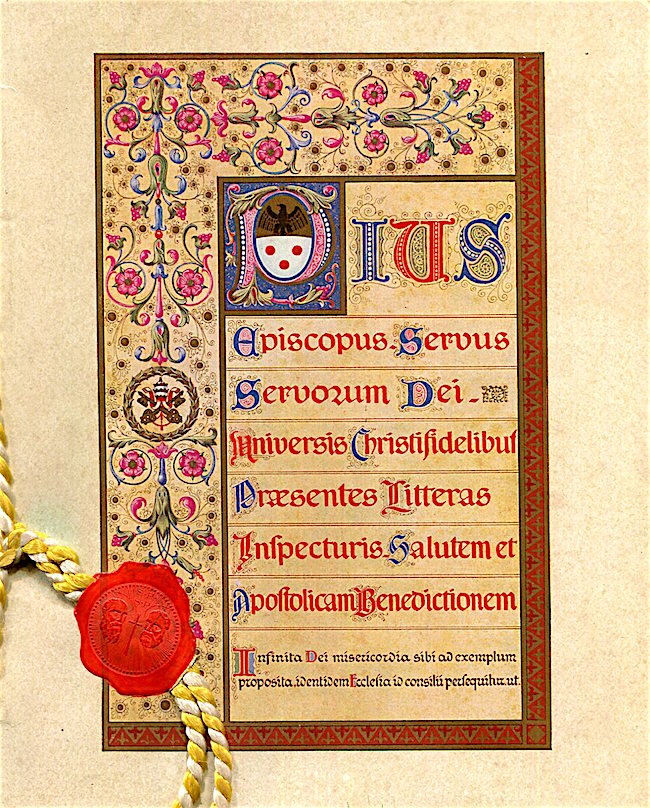 PIUS
Episcopus. Servus
Servorum Dei -
Universis Christifidelibus
Præsentes Litteras
Inspecturis Salutem et
Apostolicam Benedictionem
Infinita Dei misericordia sibi ad exemplum
proposita, identidem Ecclesia id consilii persequitur, ut